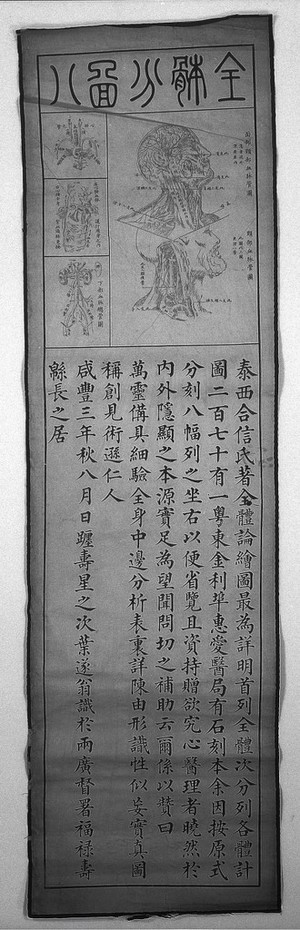 全體分圖八
頸部血脉管圖
泰西合信氏著全體論繪圖最為詳明首列全體次分列各體計
圖二百七十有一粵東金利埠惠愛醫局有石刻本余因按原式
分刻八幅列之坐右以便省覽且資持贈欲究心醫理者曉然於
內外隱顯之本源實足為望聞問切之補助云爾係以贊曰
萬靈備具細驗全身中邊分析表裏詳陳由形識性似妄實真圖
稱創見術遜仁人
咸豐三年秋八月日躔壽星之次葉遂翁識於兩廣督署福祿壽
緜長之居